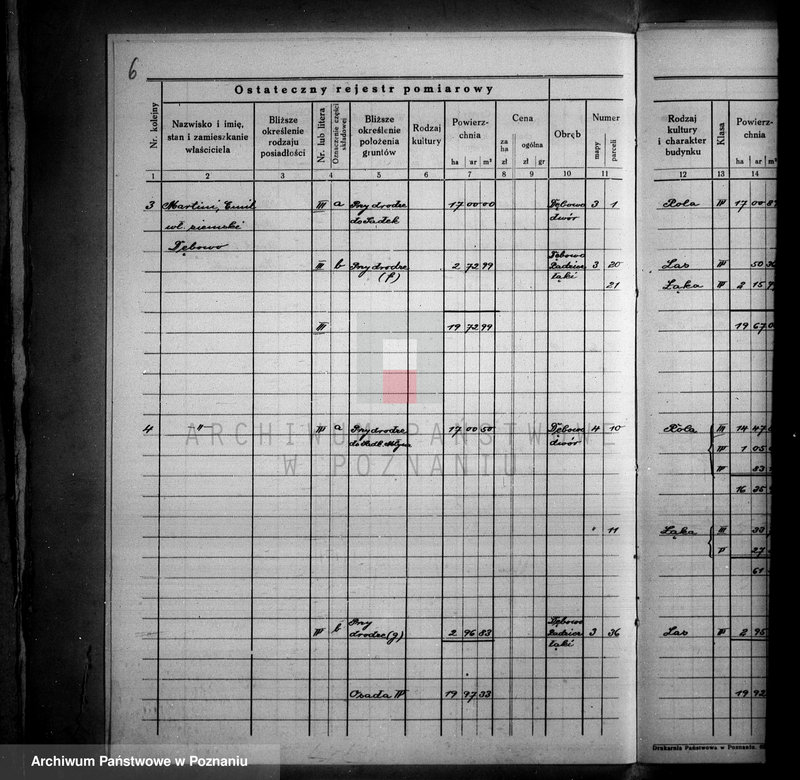 6
Ostateczny rejestr pomiarowy
Nr. kolejny
Nazwisko i imię, stan i zamieszkanie właściciela
Bliższe określenie rodzaju posiadłości
Nr. lub litera
Oznaczenie części składowej
Bliższe określenie położenia gruntów
Rodzaj kultury
Powierzchnia
ha ar m²
Cena
za ha zł
ogólna zł gr
Obręb
Numer
mapy parceli
Rodzaj kultury i charakter budynku
Klasa
Powierzchnia
ha ar m²
1 2 3 4 5 6 7 8 9 10 11 12 13 14
3 Martini, Emil III a Przy drodze 17 00 00 Dębowo 3 1 Rola IV 17 00
wł. ziemski do Sadek dwór
Dębowo
III b Przy drodze 2 72 99 Dębowo 3 20 Las IV 50
(f) 21 Łąka V 2 15
III 19 72 99 19 67
4 -"- IV a Przy drodze 17 00 50 Dębowo 4 10 Rola III 14 47
dwór IV 1 05
83
16 35
" 11 Łąka III 33
27
61
IV b Przy Dębowo
drodze (g) 2 96 83 3 36 Las IV 2 95
Osada IV 19 97 33 19 92
Drukarnia Państwowa w Poznaniu.
ARCHIWUM PAŃSTWOWE
W POZNANIU
Archiwum Państwowe w Poznaniu